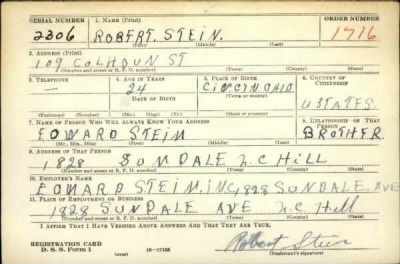 SERIAL NUMBER 1. NAME (Print) ORDER NUMBER
2306 ROBERT. STEIN. 1716
(First) (Middle) (Last)
2. ADDRESS (Print)
109 CALHOUN ST
(Number and street or R. F. D. number) (Town) (County) (State)
3. TELEPHONE 4. AGE IN YEARS 5. PLACE OF BIRTH 6. COUNTRY OF CITIZENSHIP
— 24 CINCINO
DATE OF BIRTH (Town or county)
U STATES
(Exchange) (Number) (Mo.) (Day) (Yr.) (State or country)
7. NAME OF PERSON WHO WILL ALWAYS KNOW YOUR ADDRESS 8. RELATIONSHIP OF THAT PERSON
EDWARD STEIN BROTHER
(Mr., Mrs., Miss) (First) (Middle) (Last)
9. ADDRESS OF THAT PERSON
1828 SUNDALE N.C HILL
(Number and street or R. F. D. number) (Town) (County) (State)
10. EMPLOYER'S NAME
EDWARD STEIN. INC, 1828 SUNDALE AVE
11. PLACE OF EMPLOYMENT OR BUSINESS
1828 SUNDALE AVE N.C Hill
(Number and street or R. F. D. number) (Town) (County) (State)
I AFFIRM THAT I HAVE VERIFIED ABOVE ANSWERS AND THAT THEY ARE TRUE.
REGISTRATION CARD
D. S. S. Form 1 (over) 16—17105 Robert Stein
(Registrant's signature)